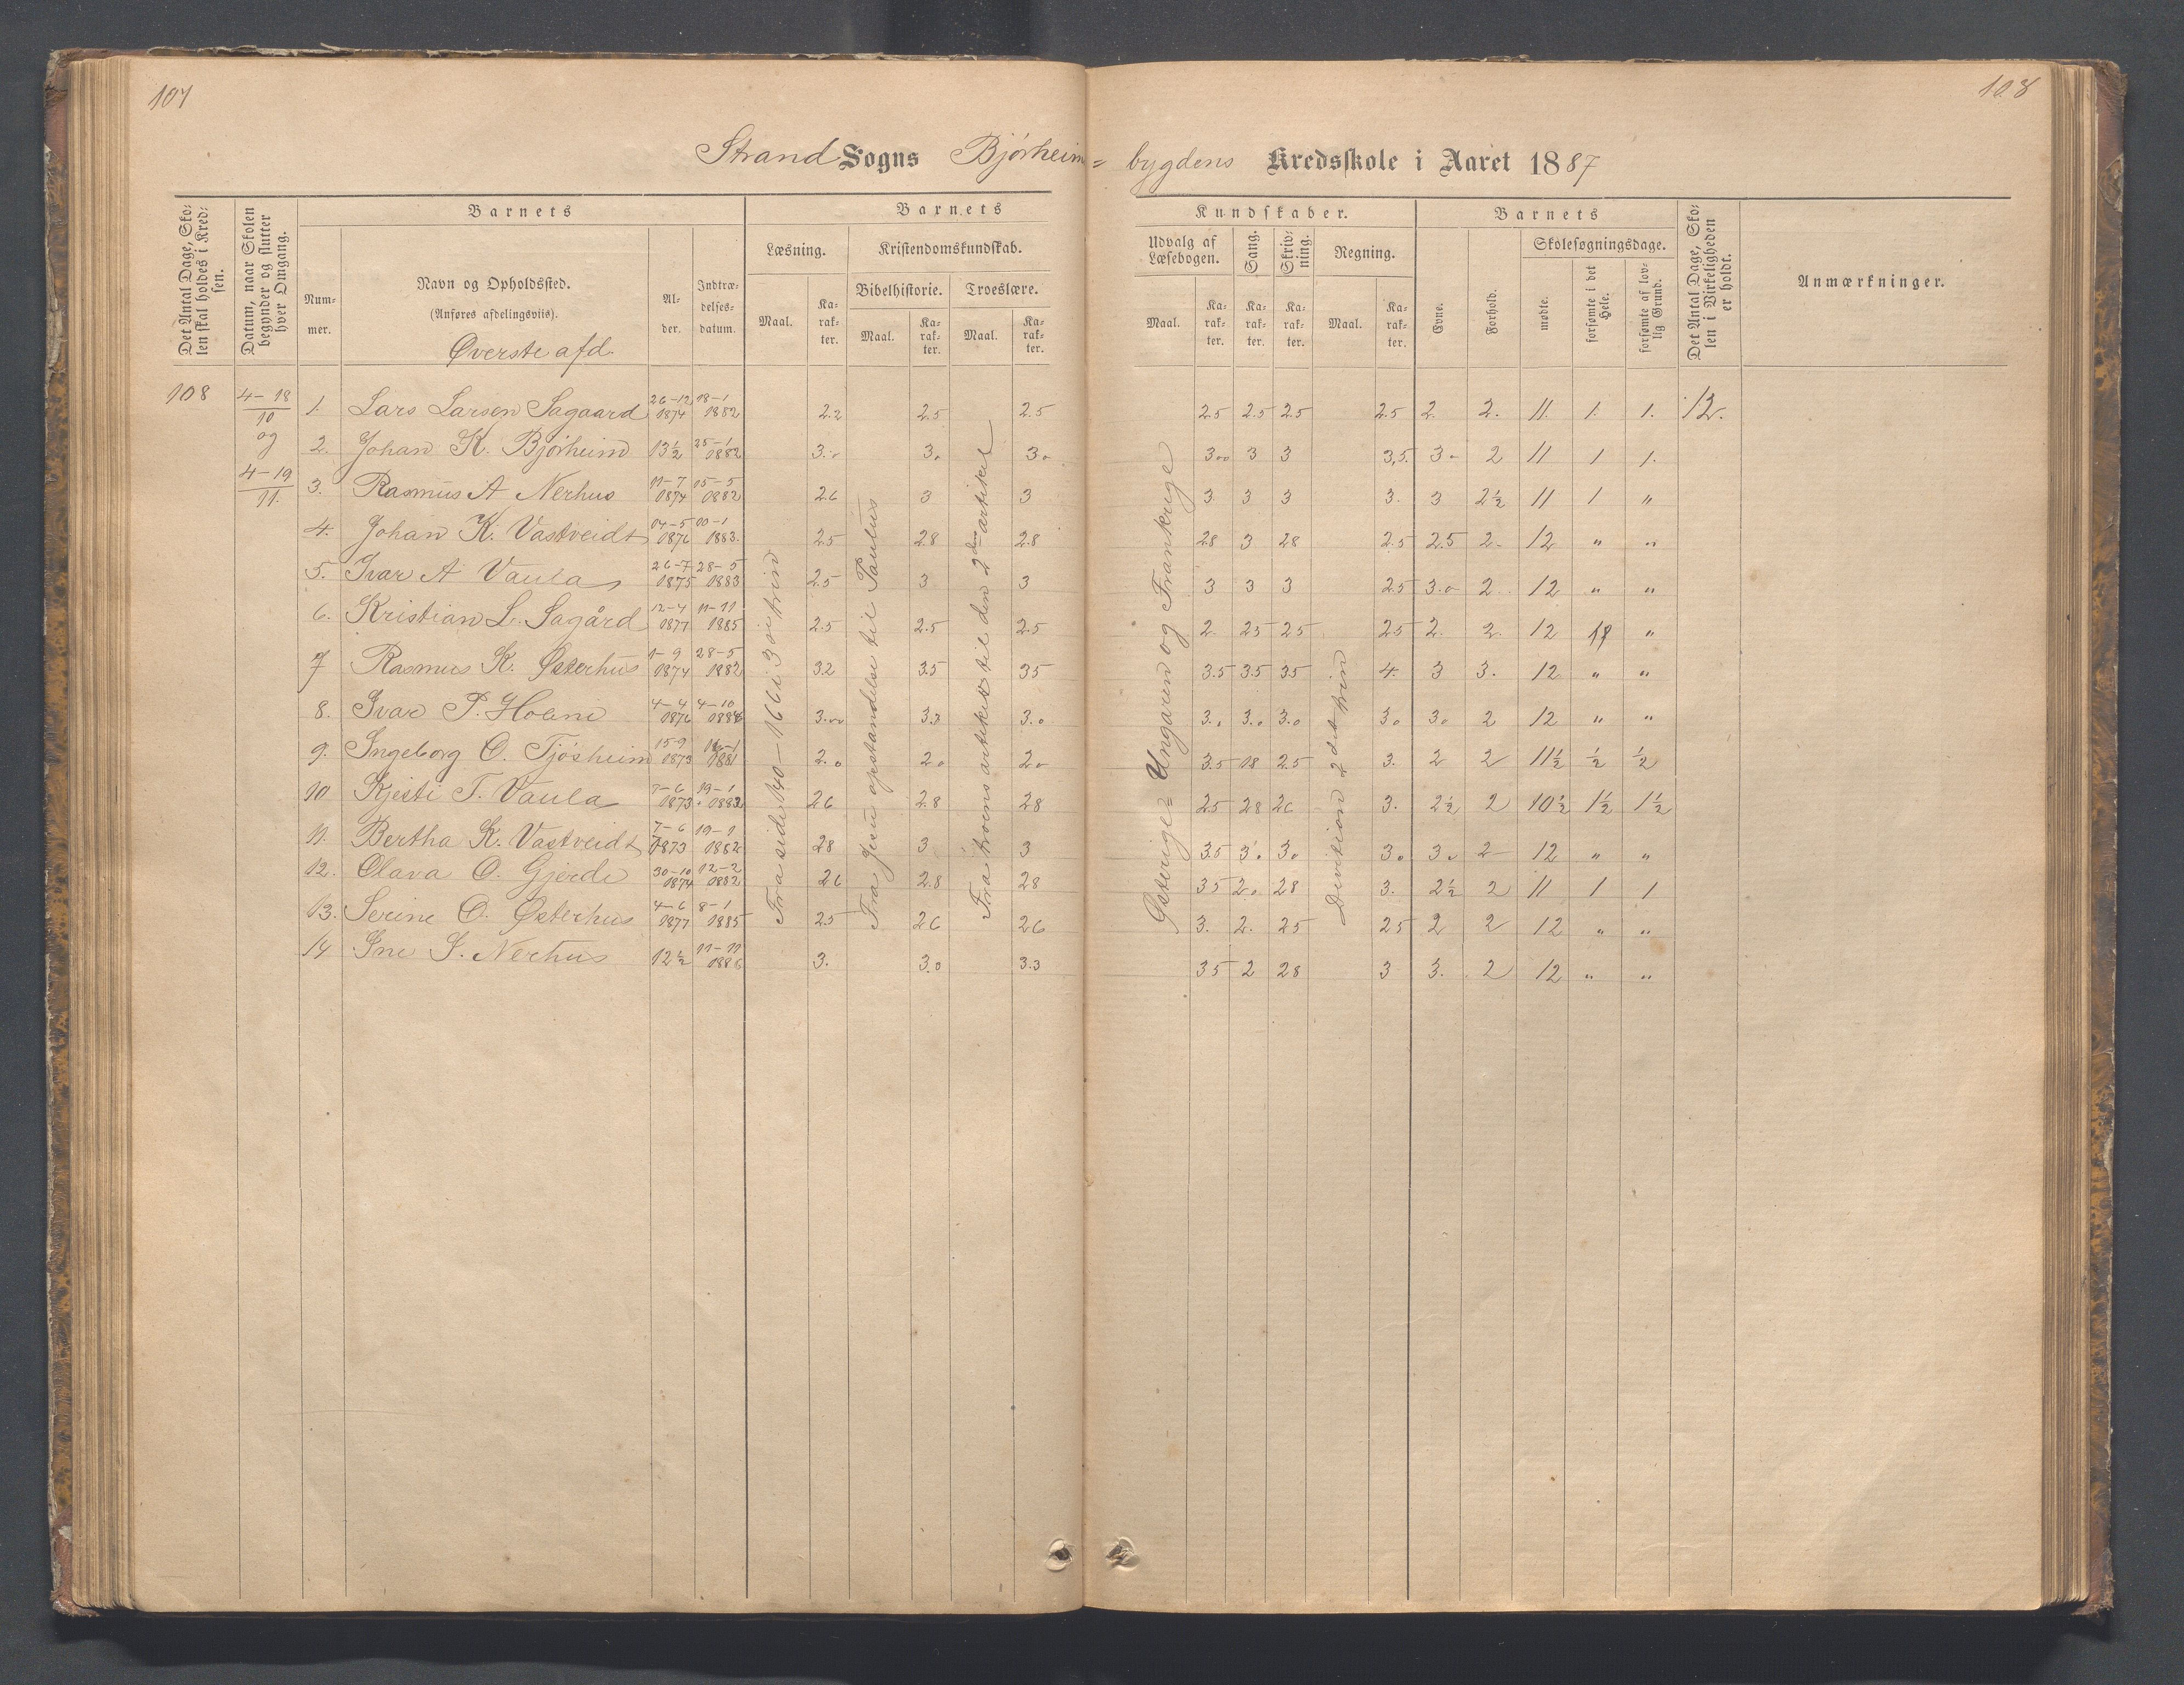 107
108
Strand Sogns Bjørheim=
bygdens Kredsskole i Aaret 1887
Det Antal Dage, Skolen skal holdes i Kredsen.
Datum, naar Skolen begynder og slutter hver Omgang.
Barnets
Nummer.
Navn og Opholdssted.
(Anføres afdelingsviis).
Øverste afd.
Alder.
Indtrædelsesdatum.
Barnets
Læsning.
Kristendomskundskab.
Bibelhistorie.
Troeslære.
Maal.
Karakter.
Maal.
Karakter.
Maal.
Karakter.
Kundskaber.
Udvalg af Læsebogen.
Sang.
Skrivning.
Regning.
Maal.
Karakter.
Karakter.
Karakter.
Maal.
Karakter.
Barnets
Evne.
Forhold.
Skolesøgningsdage.
mødte.
forsømte i det Hele.
forsømte af lovlig Grund.
Det Antal Dage, Skolen i Virkeligheden er holdt.
Anmærkninger.
108
4-18/10 og 4-19/11.
Fra side 140-166 i 3die trin
Fra Jesu opstandelse til Paulus
Fra troens artikel til den 2den artikel
Østerige=Ungaren og Frankrige
Devision 2det trin
1. Lars Larsen Sagaard 26-12 1874 18-1 1882 2.2 2.5 2.5 2.5 2.5 2.5 2.5 2. 2. 11. 1. 1. 12.
2. Johan K. Bjørheim 13½ 25-1 1882 3.0 3. 3.0 3.00 3 3 3,5. 3.0 2 11 1 1.
3. Rasmus A Nerhus 11-7 1874 15-5 1882 2.6 3 3 3. 3 3 3. 3 2½ 11 1 "
4. Johan K. Vastveidt 04-5 1876 1883. 2.5 2.8 2.8 2.8 3 28 2.5 2.5 2. 12 " "
5. Ivar A Vaula 26-7 1875 28-5 1883 2.5 3 3 3 3 3 2.5 3.0 2. 12 " "
6. Kristian L. Sagård 12-4 1877 11-11 1885 2.5 2.5 2.5 2. 25 25 25 2. 2. 12 "
7 Rasmus K. Østerhus 1-9 1874 28-5 1882 32 3.5 35 3.5 3.5 35 4. 3 3. 12 " "
8. Ivar P. Holene 4-4 1876 4-10 1884 3.00 3.3 3.0 3.0 3.0 3.0 3.0 3.0 2 12 " "
9. Ingeborg O. Tjøsheim 15-9 1873 1881 2.0 2.0 2.0 3.5 18 2.5 3. 2 2 11½ ½ ½
10 Kjesti T. Vaula 7-6 1873 19-1 1882 26 2.8 28 25 28 26 3. 2½ 2 10½ 1½ 1½
11. Bertha K. Vastveidt 7-6 1873 19-1 1882 28 3 3 3.5 3.0 3.0 3.0 3.0 2 12 " "
12. Olava O. Gjerde 30-10 1874 12-2 1882 26 2.8 28 35 2.0 28 3. 2½ 2 11 1 1
13. Serine O. Østerhus 4-6 1877 8-1 1885 25 26 26 3. 2. 25 25 2 2 12 " "
14 Ine S. Nerhus 12½ 11-11 1886 3. 3.0 3.3 35 2 28 3 3. 2 12 " "